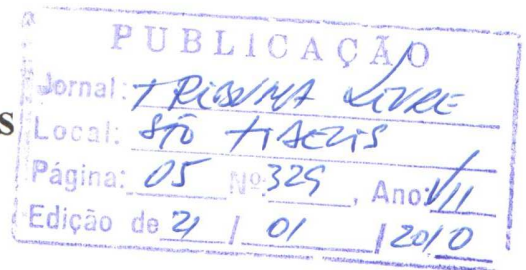 PUBLICAÇÃO
Jornal: TRIBUNA LIVRE
s Local: STO
Página: 05 Nº 329, Ano: VII
Edição de 21 / 01 / 2010